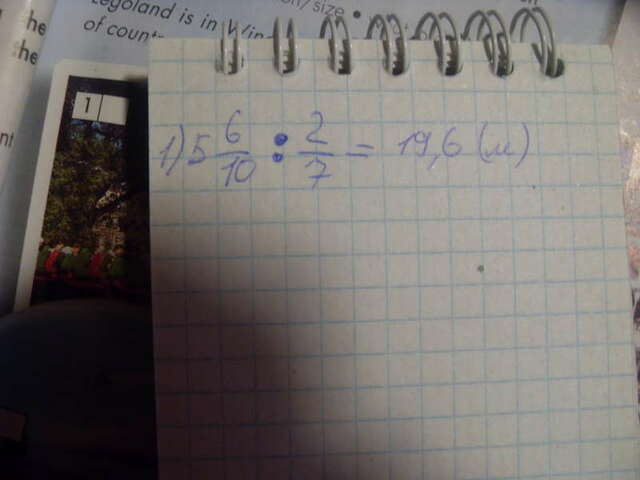 he
the
nt
Legoland is in Win
of count
/size •
1
1) 5 6/10 : 2/7 = 19,6 (м)